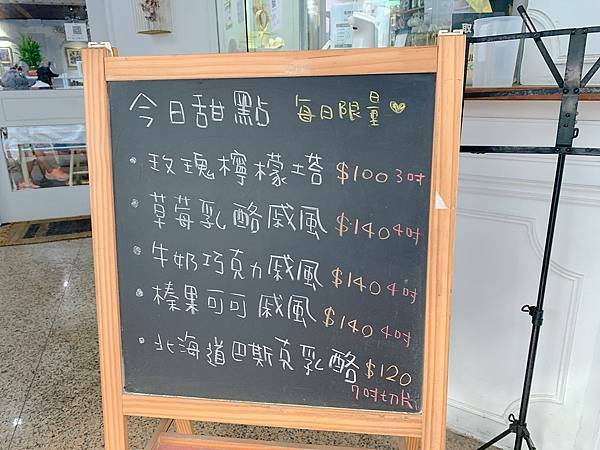 今日甜點 每日限量
• 玫瑰檸檬塔 $100 3吋
• 草莓乳酪戚風 $140 4吋
• 牛奶巧克力戚風 $140 4吋
• 榛果可可戚風 $140 4吋
• 北海道巴斯克乳酪 $120
7吋切片
取